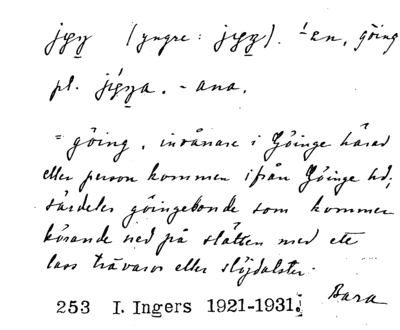 jıgŋ (yngre: jıgŋ). -́en, göing
pl. jı́gŋa. -ana.
= göing, invånare i Göinge härad
eller person kommen ifrån Göinge hd;
särdeles göingebonde som kommer
körande ned på slätten med ett
lass trävaror eller slöjdalster.
Bara
253 I. Ingers 1921-1931.